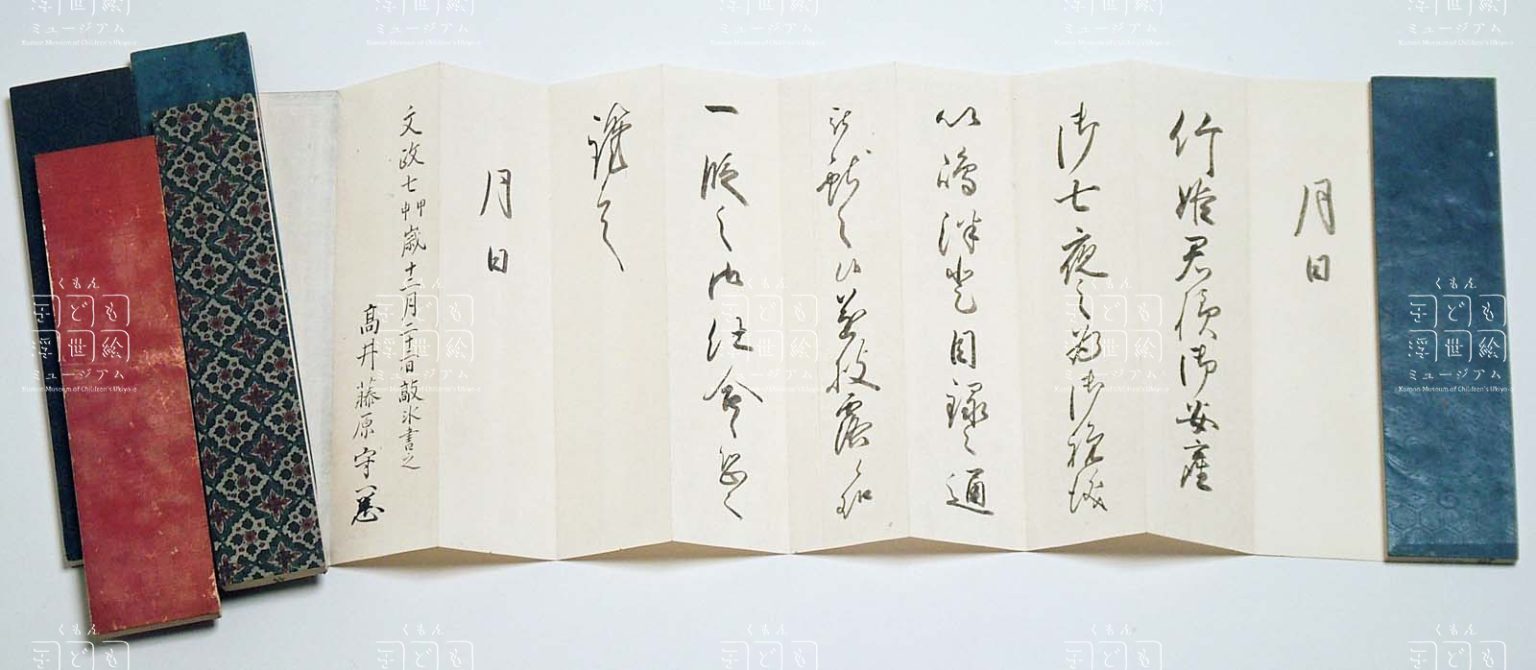 月日
竹姫君様御安産
御七夜之為御祝儀
以 目録之通
被献之候 披露
一段之御仕合
謹言
月日
文政七甲申歳十二月二十三日敲氷書之
高井藤原守
くもん
子ども
浮世絵
ミュージアム
Kumon Museum of Children's Ukiyo-e